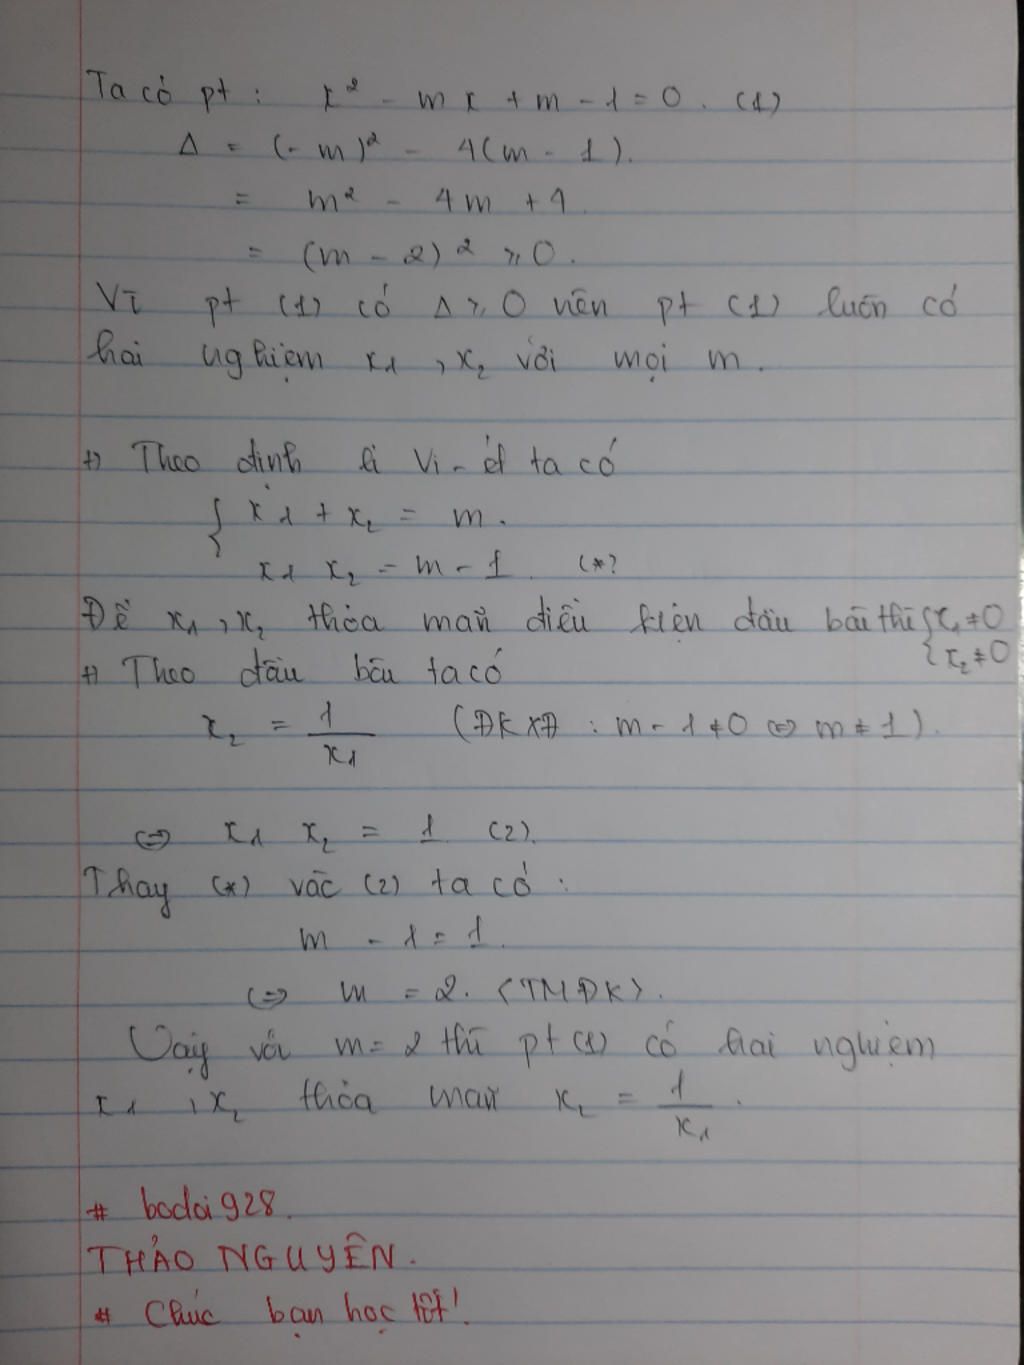 Ta có pt : x² - mx + m - 1 = 0. (1)
Δ = (-m)² - 4(m - 1).
= m² - 4m + 4
= (m - 2)² ≥ 0.
Vì pt (1) có Δ ≥ 0 nên pt (1) luôn có
hai nghiệm x₁ , x₂ với mọi m.
+) Theo định lí Vi-ét ta có
{ x₁ + x₂ = m.
x₁ x₂ = m - 1 (*)
Để x₁ , x₂ thỏa mãn điều kiện đầu bài thì { x₁ ≠ 0
{ x₂ ≠ 0
+) Theo đầu bài ta có
x₂ = 1/x₁ (ĐKXĐ : m - 1 ≠ 0 ⇔ m ≠ 1).
⇔ x₁ x₂ = 1 (2).
Thay (*) vào (2) ta có :
m - 1 = 1.
⇔ m = 2. (TMĐK).
Vậy với m = 2 thì pt (1) có hai nghiệm
x₁ , x₂ thỏa mãn x₂ = 1/x₁ .
# bodoi928.
THẢO NGUYÊN.
# Chúc bạn học tốt!